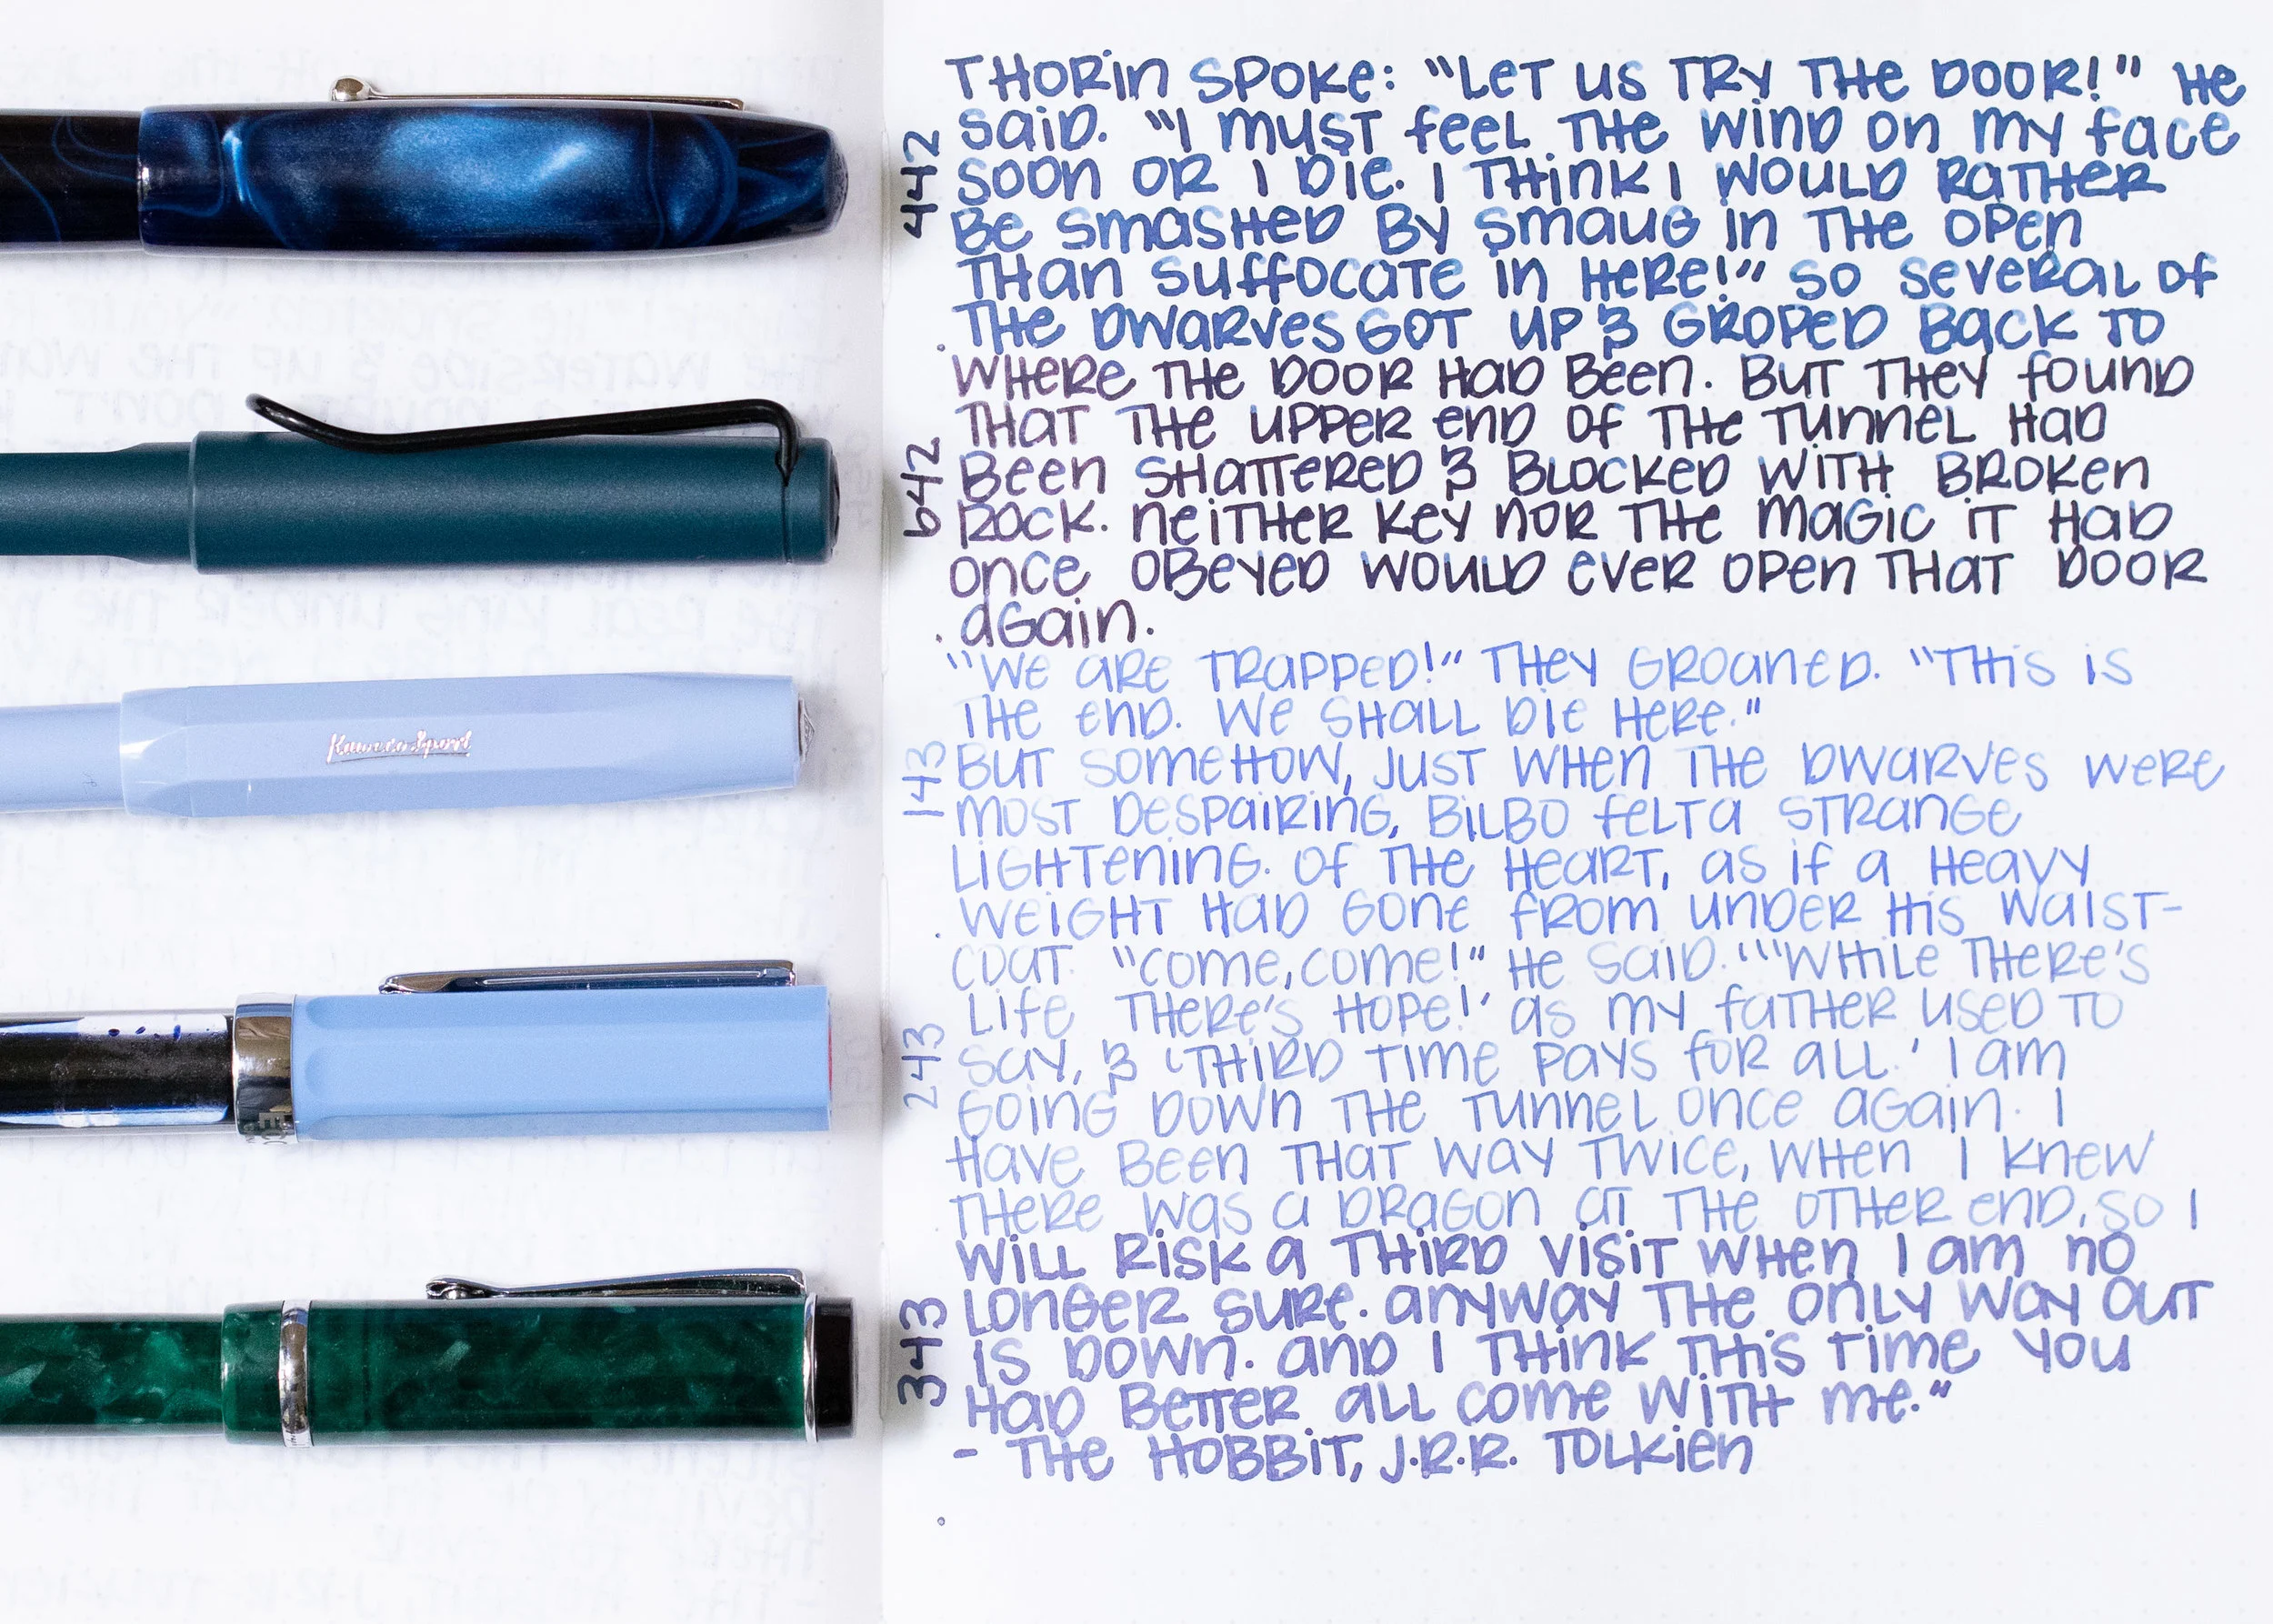 THORIN SPOKE: "LET US TRY THE DOOR!" HE
SAID. "I MUST FEEL THE WIND ON MY FACE
SOON OR I DIE. I THINK I WOULD RATHER
BE SMASHED BY SMAUG IN THE OPEN
THAN SUFFOCATE IN HERE!" SO SEVERAL OF
THE DWARVES GOT UP & GROPED BACK TO
442
WHERE THE DOOR HAD BEEN. BUT THEY FOUND
THAT THE UPPER END OF THE TUNNEL HAD
BEEN SHATTERED & BLOCKED WITH BROKEN
ROCK. NEITHER KEY NOR THE MAGIC IT HAD
ONCE OBEYED WOULD EVER OPEN THAT DOOR
AGAIN.
642
"WE ARE TRAPPED!" THEY GROANED. "THIS IS
THE END. WE SHALL DIE HERE."
BUT SOMEHOW, JUST WHEN THE DWARVES WERE
MOST DESPAIRING, BILBO FELT A STRANGE
LIGHTENING. OF THE HEART, AS IF A HEAVY
WEIGHT HAD GONE FROM UNDER HIS WAIST-
143
Kaweco Sport
COAT. "COME, COME!" HE SAID. "'WHILE THERE'S
LIFE THERE'S HOPE!' AS MY FATHER USED TO
SAY, & 'THIRD TIME PAYS FOR ALL.' I AM
GOING DOWN THE TUNNEL ONCE AGAIN. I
HAVE BEEN THAT WAY TWICE, WHEN I KNEW
THERE WAS A DRAGON AT THE OTHER END, SO I
243
WILL RISK A THIRD VISIT WHEN I AM NO
LONGER SURE. ANYWAY THE ONLY WAY OUT
IS DOWN. AND I THINK THIS TIME YOU
HAD BETTER ALL COME WITH ME."
- THE HOBBIT, J.R.R. TOLKIEN
343